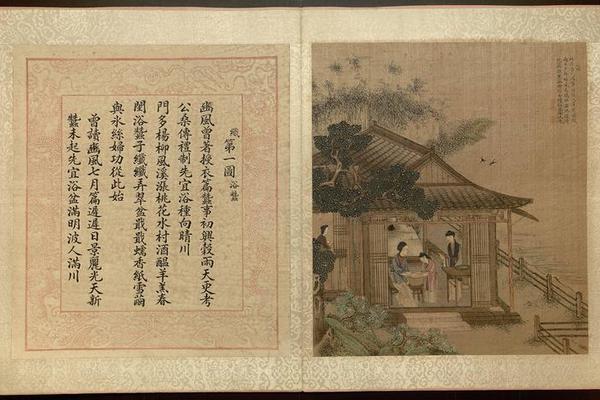 織第一圖 浴蠶
豳風曾著授衣篇蠶事初興穀雨天更考
公桑傳禮制先宜浴種向晴川
門多楊柳風溪漲桃花水村酒醖羊羔春
閨浴蠶子纖纖弄翠盆戢戢蠕香紙雪繭
與氷絲婦功從此始
曾讀豳風七月篇遲遲日景麗光天新
蠶未起先宜浴盆滿明波人滿川